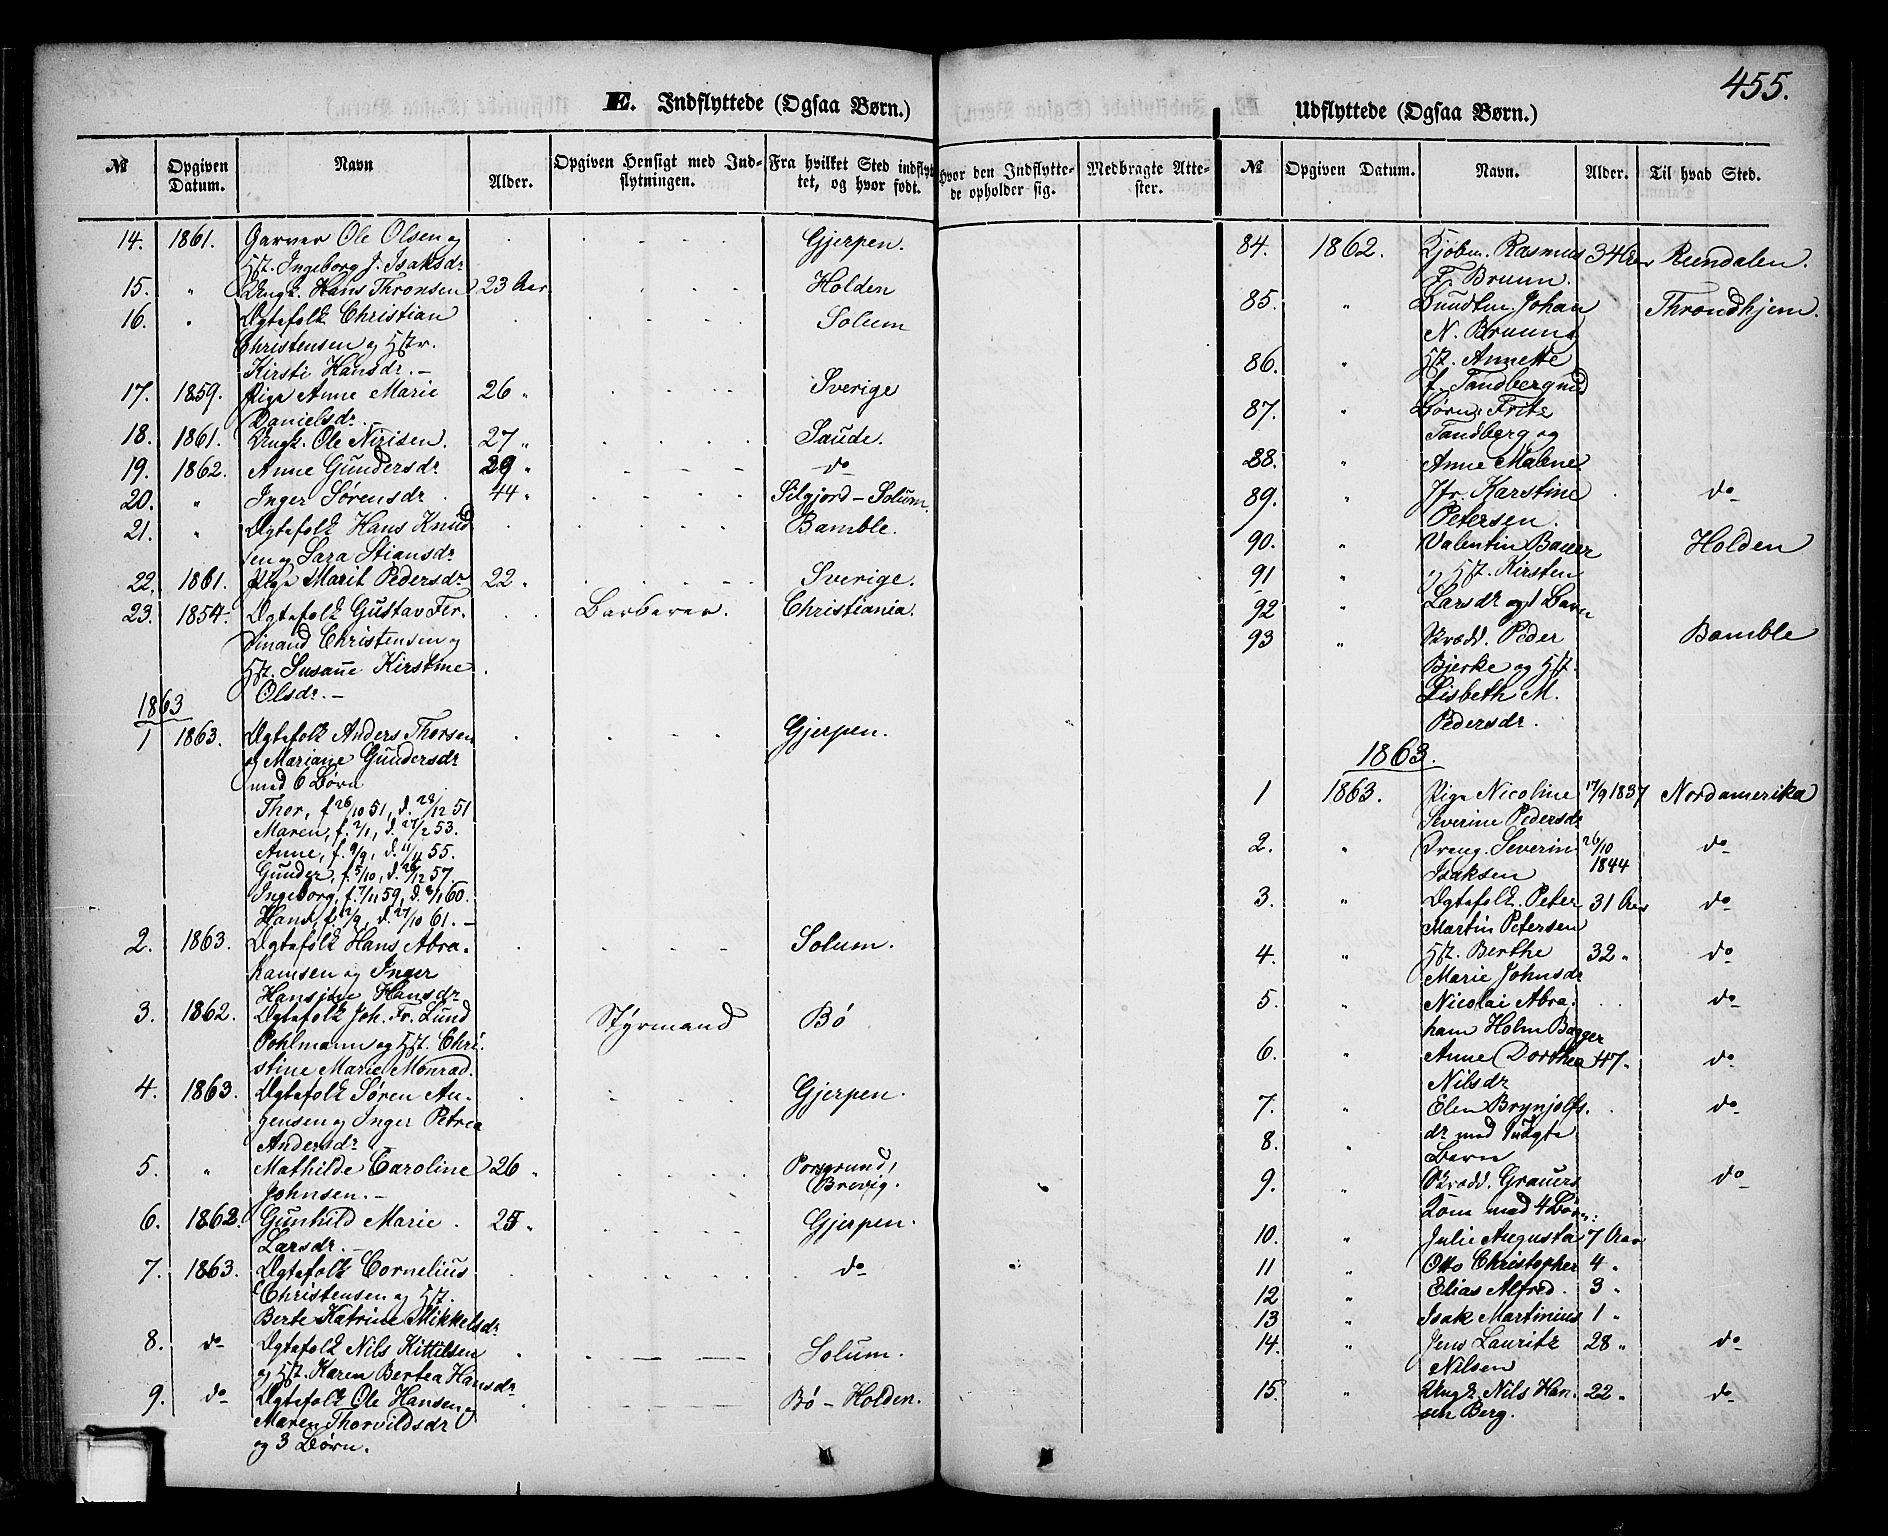 455.
E. Indflyttede (Ogsaa Børn.)
№ Opgiven Datum. Navn Alder. Opgiven Hensigt med Indflytningen. Fra hvilket Sted indflyttet, og hvor født. Hvor den Indflyttede opholder sig. Medbragte Attester.
14. 1861. Garver Ole Olsen og Gjerpen.
Hst. Ingeborg J. Isaksdr
15. " Ungk. Hans Thronsen 23 Aar. Holden
16. " Ægtefolk Christian Solum
Christensen og Hstr.
Kirsti Hansdr. —
17. 1859. Pige Anne Marie 26 " Sverige
Danielsdr
18. 1861. Ungk. Ole Nirisen. 27 " Saude.
19. 1862. Anne Gundersdr 29 " do
20. " Inger Sørensdr 44 " Silgjord — Solum.
21. " Ægtefolk Hans Knud Bamble.
sen og Sara Stiansdr
22. 1861. Pige Marit Pedersdr 22 " Sverige.
23. 1854. Ægtefolk Gustav Fer- Barberer. Christiania.
dinand Christensen og
Hst. Susañe Kirstine
Olsdr. —
1863
1 1863. Ægtefolk Anders Thorsen Gjerpen.
og Mariane Gundersdr
med 6 Børn
Thor, f. 26/10 51, d. 28/12 51
Maren, f. 2/1, d. 27/2 53.
Anne, f. 9/9, d. 11/11 55.
Gunder, f. 5/10, d. 26/12 57.
Ingeborg, f. 7/11 59, d. 8/1 60.
Hans, f. 12/9, d. 27/10 61. —
2. 1863. Ægtefolk Hans Abra- Solum.
hamsen og Inger
Hansine Hansdr
3. 1862. Ægtefolk Joh. Fr. Lund Styrmand Bø
Pohlmann og Hst. Chri-
stine Marie Monrad.
4. 1863. Ægtefolk Søren An- Gjerpen.
gensen og Inger Petrea
Andersdr
5. " Mathilde Caroline 26 " Porsgrund,
Johnsen. — Brevig.
6. 1862. Gunhild Marie 25 " Gjerpen.
Larsdr. —
7. 1863. Ægtefolk Cornelius do
Christensen og Hst.
Berte Katrine Mikkelsdr
8. do Ægtefolk Nils Kittilsen Solum.
og Hst. Karen Bertea Hansdr
9. do Ægtefolk Ole Hansen Bø — Holden.
og Maren Thorvildsdr
og 3 Børn.
Udflyttede (Ogsaa Børn.)
№ Opgiven Datum. Navn. Alder. Til hvad Sted.
84. 1862. Kjøbm. Rasmus 34 Aar
F. Bruun.
85. " Johan Throndhjem.
N. Bruun og
86. " Hst. Annette
f. Tandberg med
87. " Børn: Fritz
Tandberg og
88. " Anne Malene
89. " Jfr. Karstine do
Petersen.
90. " Valentin Bauer Holden
91 " og Hst. Kirsten
92 " Larsdr og 1 Barn
93 " Skrædd. Peder Bamble
Bjerke og Hst.
Lisbeth M.
Pedersdr.
1863.
1 1863. Pige Nicoline 17/9 1837 Nordamerika
Severine Pedersdr
2. " Dreng. Severin 26/10 do
Isaksen 1844
3. " Ægtefolk. Peter 31 Aar do
Martin Petersen
4. " Hst. Berthe 32 " do
Marie Johnsdr
5. " Nicolai Abra- do
ham Holm Bagger
6. " Anne Dorthea 47 " do
Nilsdr
7. " Elen Brynjolfs. do
8. " dr med 1 uægte
Barn
9. " Skrædd. Grauers do
Kone med 4 Børn:
10. " Julie Augusta 7 Aar
11 " Otto Christopher 4 "
12 " Elias Alfred. 3 "
13 " Isak Martinius 1 "
14. " Jens Lauritz 28 " do
Nilsen
15. " Ungk. Nils Han- 22 " do
sen Berg.